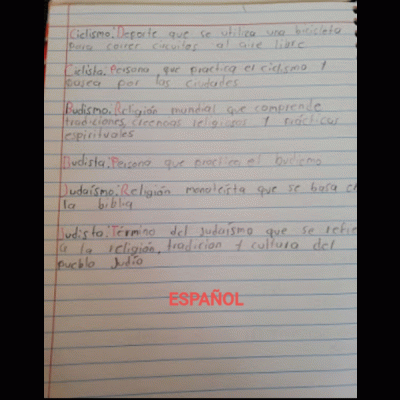 Ciclismo: Deporte que se utiliza una bicicleta
para correr circuitos al aire libre
Ciclista: Persona que practica el ciclismo y
pasea por las ciudades
Budismo: Religión mundial que comprende
tradiciones, creencias religiosas y prácticas
espirituales
Budista: Persona que practica el budismo
Judaísmo: Religión monoteísta que se basa en
la biblia
Judista: Término del Judaísmo que se refie
a la religión, tradicion y cultura del
pueblo Judío
ESPAÑOL